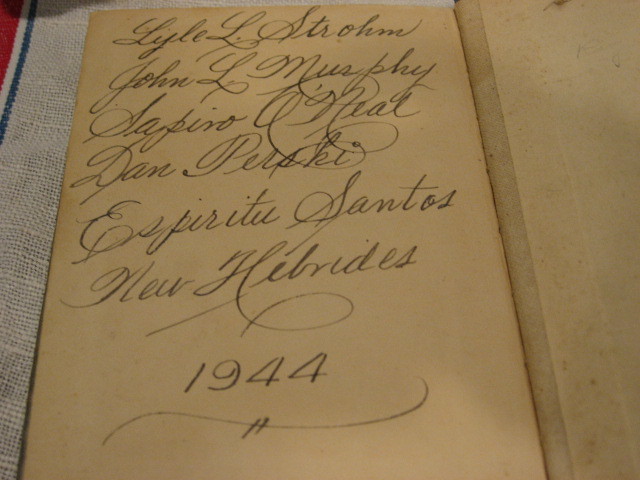 Lyle L. Strohm
John L. Murphy
Sapiro O'Neal
Dan Perski
Espiritu Santos
New Hebrides
1944